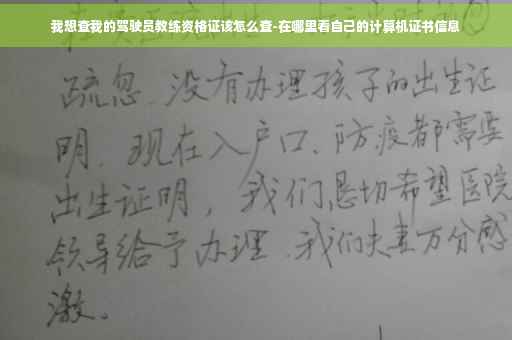 我想查我的驾驶员教练资格证该怎么查-在哪里看自己的计算机证书信息
疏忽、没有办理孩子的出生证
明、现在入户口、防疫都需要
出生证明，我们恳切希望医院
领导给予办理、我们夫妻万分感
激。